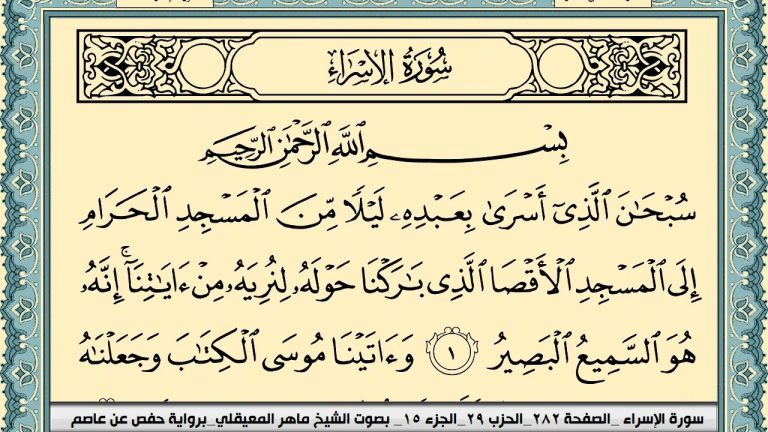 سُورَةُ الإِسْرَاءِ
بِسْمِ اللَّهِ الرَّحْمَٰنِ الرَّحِيمِ
سُبْحَٰنَ ٱلَّذِىٓ أَسْرَىٰ بِعَبْدِهِۦ لَيْلًا مِّنَ ٱلْمَسْجِدِ ٱلْحَرَامِ
إِلَى ٱلْمَسْجِدِ ٱلْأَقْصَا ٱلَّذِى بَٰرَكْنَا حَوْلَهُۥ لِنُرِيَهُۥ مِنْ ءَايَٰتِنَآ ۚ إِنَّهُۥ
هُوَ ٱلسَّمِيعُ ٱلْبَصِيرُ ١ وَءَاتَيْنَا مُوسَى ٱلْكِتَٰبَ وَجَعَلْنَٰهُ
سورة الإسراء _الصفحة ٢٨٢_الحزب ٢٩_الجزء ١٥_ بصوت الشيخ ماهر المعيقلي_برواية حفص عن عاصم